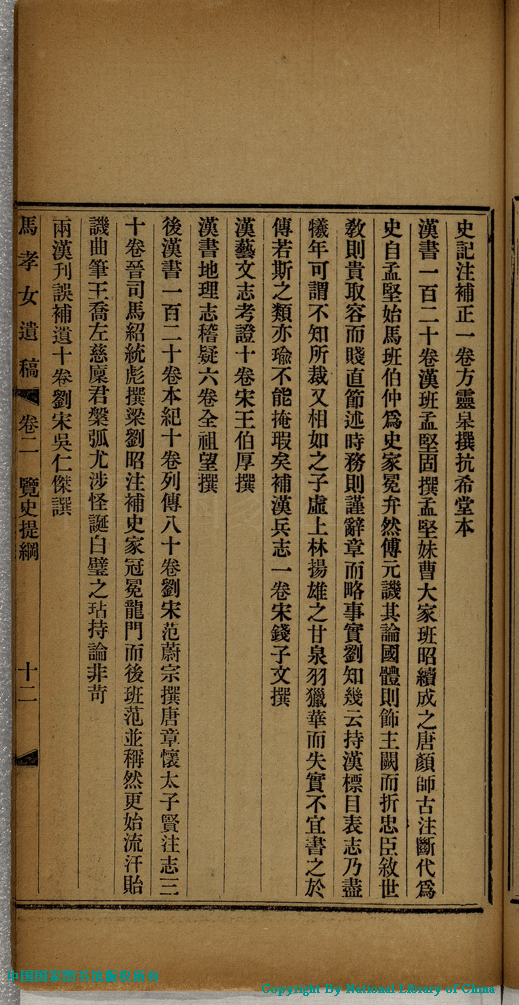 史記注補正一卷方靈皋撰抗希堂本
漢書一百二十卷漢班孟堅固撰孟堅妹曹大家班昭續成之唐顏師古注斷代爲
史自孟堅始馬班伯仲爲史家冕弁然傅元譏其論國體則飾主闕而折忠臣敘世
敎則貴取容而賤直節述時務則謹辭章而略事實劉知幾云持漢標目表志乃盡
犧年可謂不知所裁又相如之子虛上林揚雄之甘泉羽獵華而失實不宜書之於
傳若斯之類亦瑜不能掩瑕矣補漢兵志一卷宋錢子文撰
漢藝文志考證十卷宋王伯厚撰
漢書地理志稽疑六卷全祖望撰
後漢書一百二十卷本紀十卷列傳八十卷劉宋范蔚宗撰唐章懷太子賢注志三
十卷晉司馬紹統彪撰梁劉昭注補史家冠冕龍門而後班范並稱然更始流汗貽
譏曲筆王喬左慈廩君槃弧尤涉怪誕白璧之玷持論非苛
兩漢刊誤補遺十卷劉宋吳仁傑譔
馬孝女遺稿 卷二 覽史提綱 十二
中国国家图书馆版权所有
Copyright By National Library of China